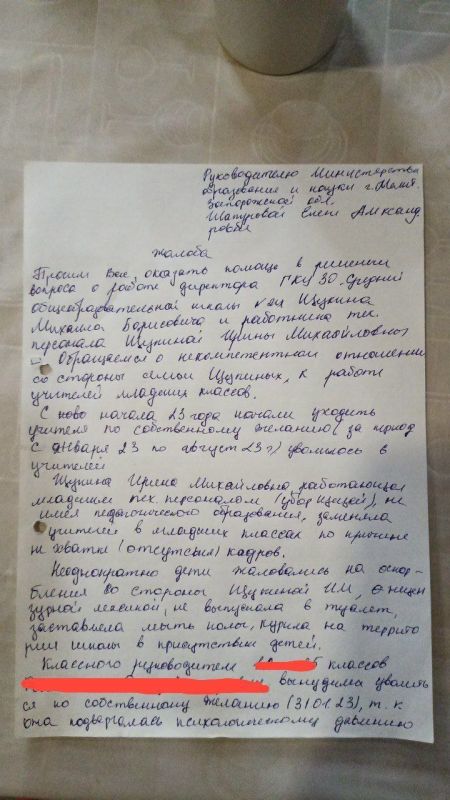 Руководителю Министерства
образования и науки г. Мелит.
Запорожской обл.
Шапуровой Елене Александ
ровне
жалоба
Просим Вас, оказать помощь в решении
вопроса о работе директора ГКУ ЗО "Средней
общеобразовательной школы №24 Щукина
Михаила Борисовича и работника тех.
персонала Щукиной Ирины Михайловны
Обращаемся о некомпетентном отношении
со стороны семьи Щукиных, к работе
учителей младших классов.
С ново начала 23 года начали уходить
учителя по собственному желанию (за период
с Января 23 по август 23 г) уволилось 8
учителей
Щукина Ирина Михайловна, работающая
младшим тех. персоналом (уборщицей), не
имея педагогического образования, заменяла
учителей в младших классах по причине
не хватки (отсутсвия) кадров.
Неоднократно дети жаловались на оскор-
бления со стороны Щукиной И.М, о нецен
зурной лексикой, не выпускала в туалет,
заставляла мыть полы, курила на террито
рии школы в присутствии детей.
Классного руководителя классов
вынудили уволить
ся по собственному желанию (31.01.23), т. к
она подвергалась психологическому давлению